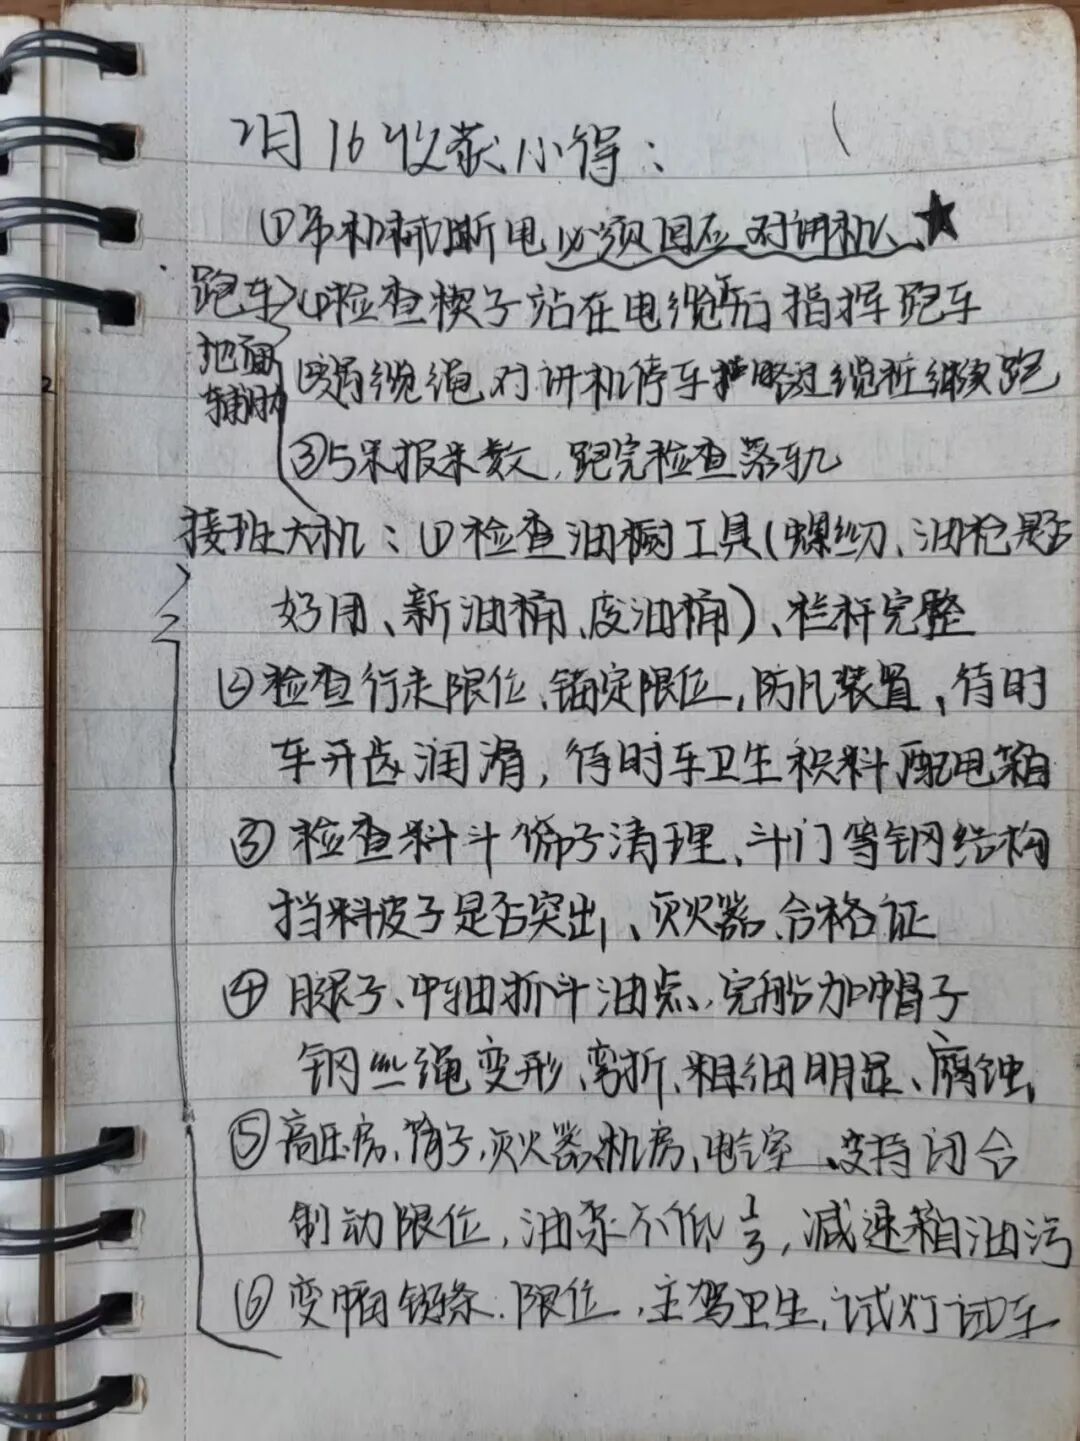 2月16收获小得：
①吊机械断电必须回应对讲机 ★
跑车 ①检查楔子站在电缆后指挥跑车
地面辅助 ②缆绳,对讲机停车 过缆桩继续跑
③5米报米数,跑完检查落轨
接班大机：①检查油橱工具(螺纫、油枪是否
好用、新油桶、废油桶)、栏杆完整
②检查行走限位、锚定限位,防风装置,待时
车开齿润滑,待时车卫生积料配电箱
③检查料斗篩子清理、斗门等钢结构
挡料皮子是否突出、灭火器、合格证
④ 子、中轴抓斗油点、完船加帽子
钢丝绳变形、弯折、粗细明显、腐蚀
⑤高压房、筒子,灭火器、机房、电气室、支持闭合
制动限位,油泵不低1/3,减速箱油污
⑥变幅链条.限位,主驾卫生,试灯试车
2